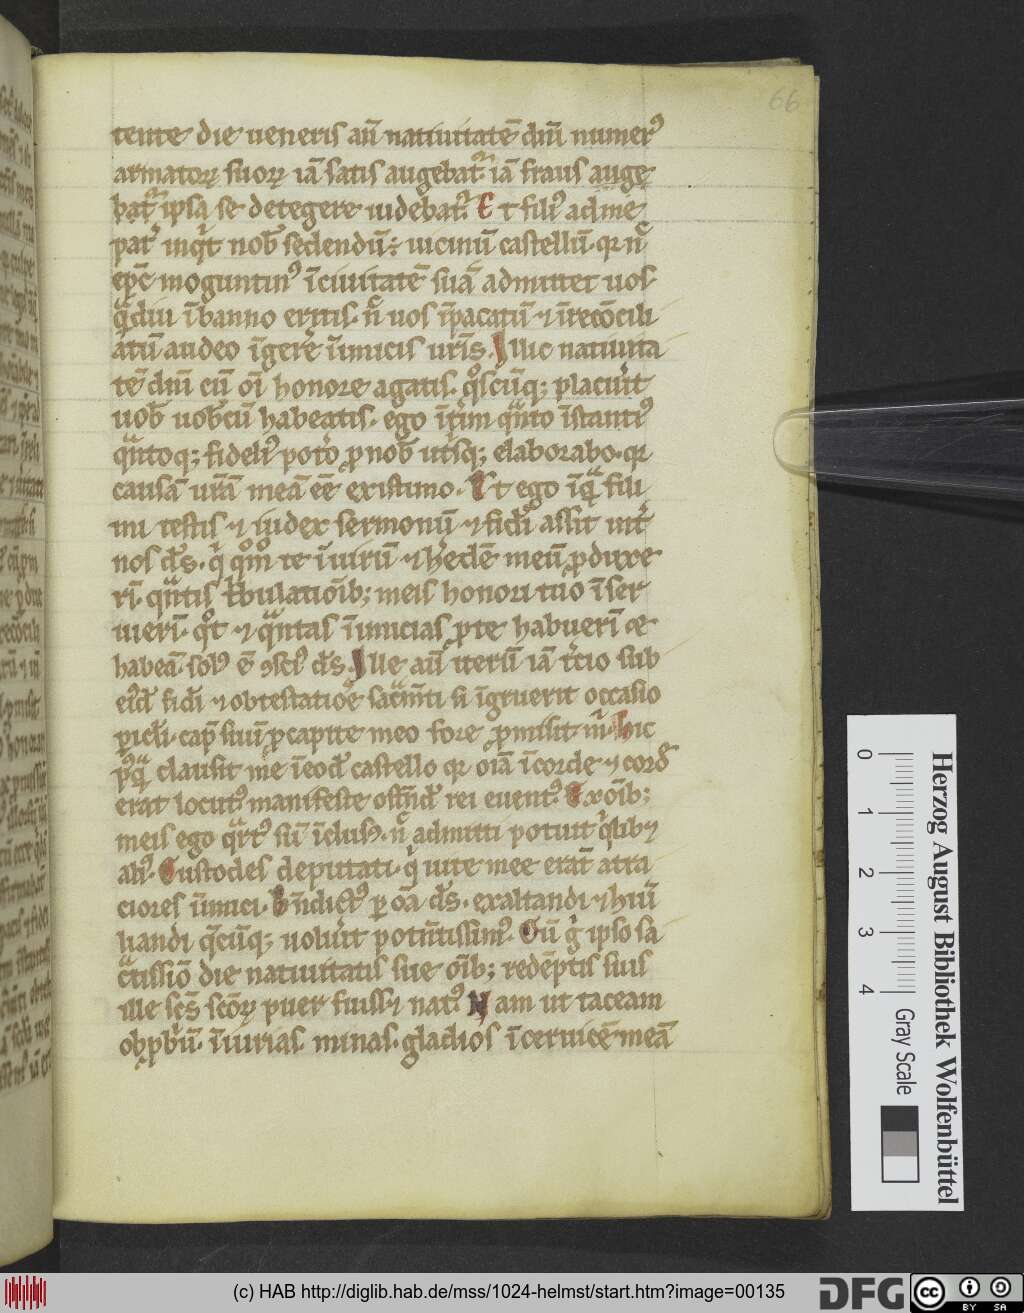 66
tente die ueneris aū natiuitatē dnī numer᷒
armatoꝝ suoꝝ iā satis augebat᷑ iā fraus auge
bat᷑ ipsa se detegere uidebat᷑ Et fili᷒ ad me
pat᷑ inqͥt nob̄ sedendū ; uicinū castellū · qꝛ nc̄
ep̄c moguntin᷒ ī ciuitatē suā admittet uos
qͣdiu ī banno eritis · nc̄ uos īpacatū ⁊ īrecōcili
atū audeo īgerē īimicis uris̄ . Illic natiuita
tē dnī cū oī honore agatis · qͦscūq; placuit̄
uob̄ uob̄cū habeatis · ego īt̄im qͣnto īstanti᷒
qͣntoq; fideli᷒ potō ꝓ nob̄ ut̄sq; elaborabo · qꝛ
causā urā meā eē existimo . Et ego īqͣ fili
mi testis ⁊ iudex sermonū ⁊ fidī assit int̄
nos ds̄ · qͥ qͦmͦ te ī uirū ⁊ h̄edē meū ꝓduxe
rī · qͣntis t̄bulatioīb; meis honori tuo īser
uierī · qͦt ⁊ qͣntas īimicias ꝓ te habuerī ⁊
habeā · sol᷒ ē ꝯsci᷒ ds̄ . Ille aū iterū iā t̄cio sub
ead̄ fidī ⁊ obtestatioē sac̄mti si īgruerit occasio
ꝑicl̄i · cap̄ suū ꝓ capite meo fore ꝓmisit m̄ . hic
p᷒qͣ clausit me ī eod̄ castello qꝛ oīa ī corde ⁊ cord̄
erat locut᷒ manifeste ostn̄d̄ rei euent᷒ . Ex oīb;
meis ego qͣrt᷒ sū īclus᷒ · nc̄ admitti potuit qͥslib⁊
ali᷒ . Custodes deputati · qͥ uite mee erāt atro
ciores īimici . Bn̄dict᷒ ꝑ oā ds̄ · exaltandi ⁊ hūi
liandi qēcūq; uoluīt potn̄tissim᷒ . Cū gͥ ipso sa
cͣtissiō die natiuitatis sue oīb; redēptis suis
ille scs̄ scōꝝ puer fuiss⁊ nat᷒ Nam ut taceam
obꝓbū · īiurias · minas · gladios ī ceruicē meā
0 1 2 3 4
Gray Scale
Herzog August Bibliothek Wolfenbüttel
(c) HAB http://diglib.hab.de/mss/1024-helmst/start.htm?image=00135
DFG
cc BY SA